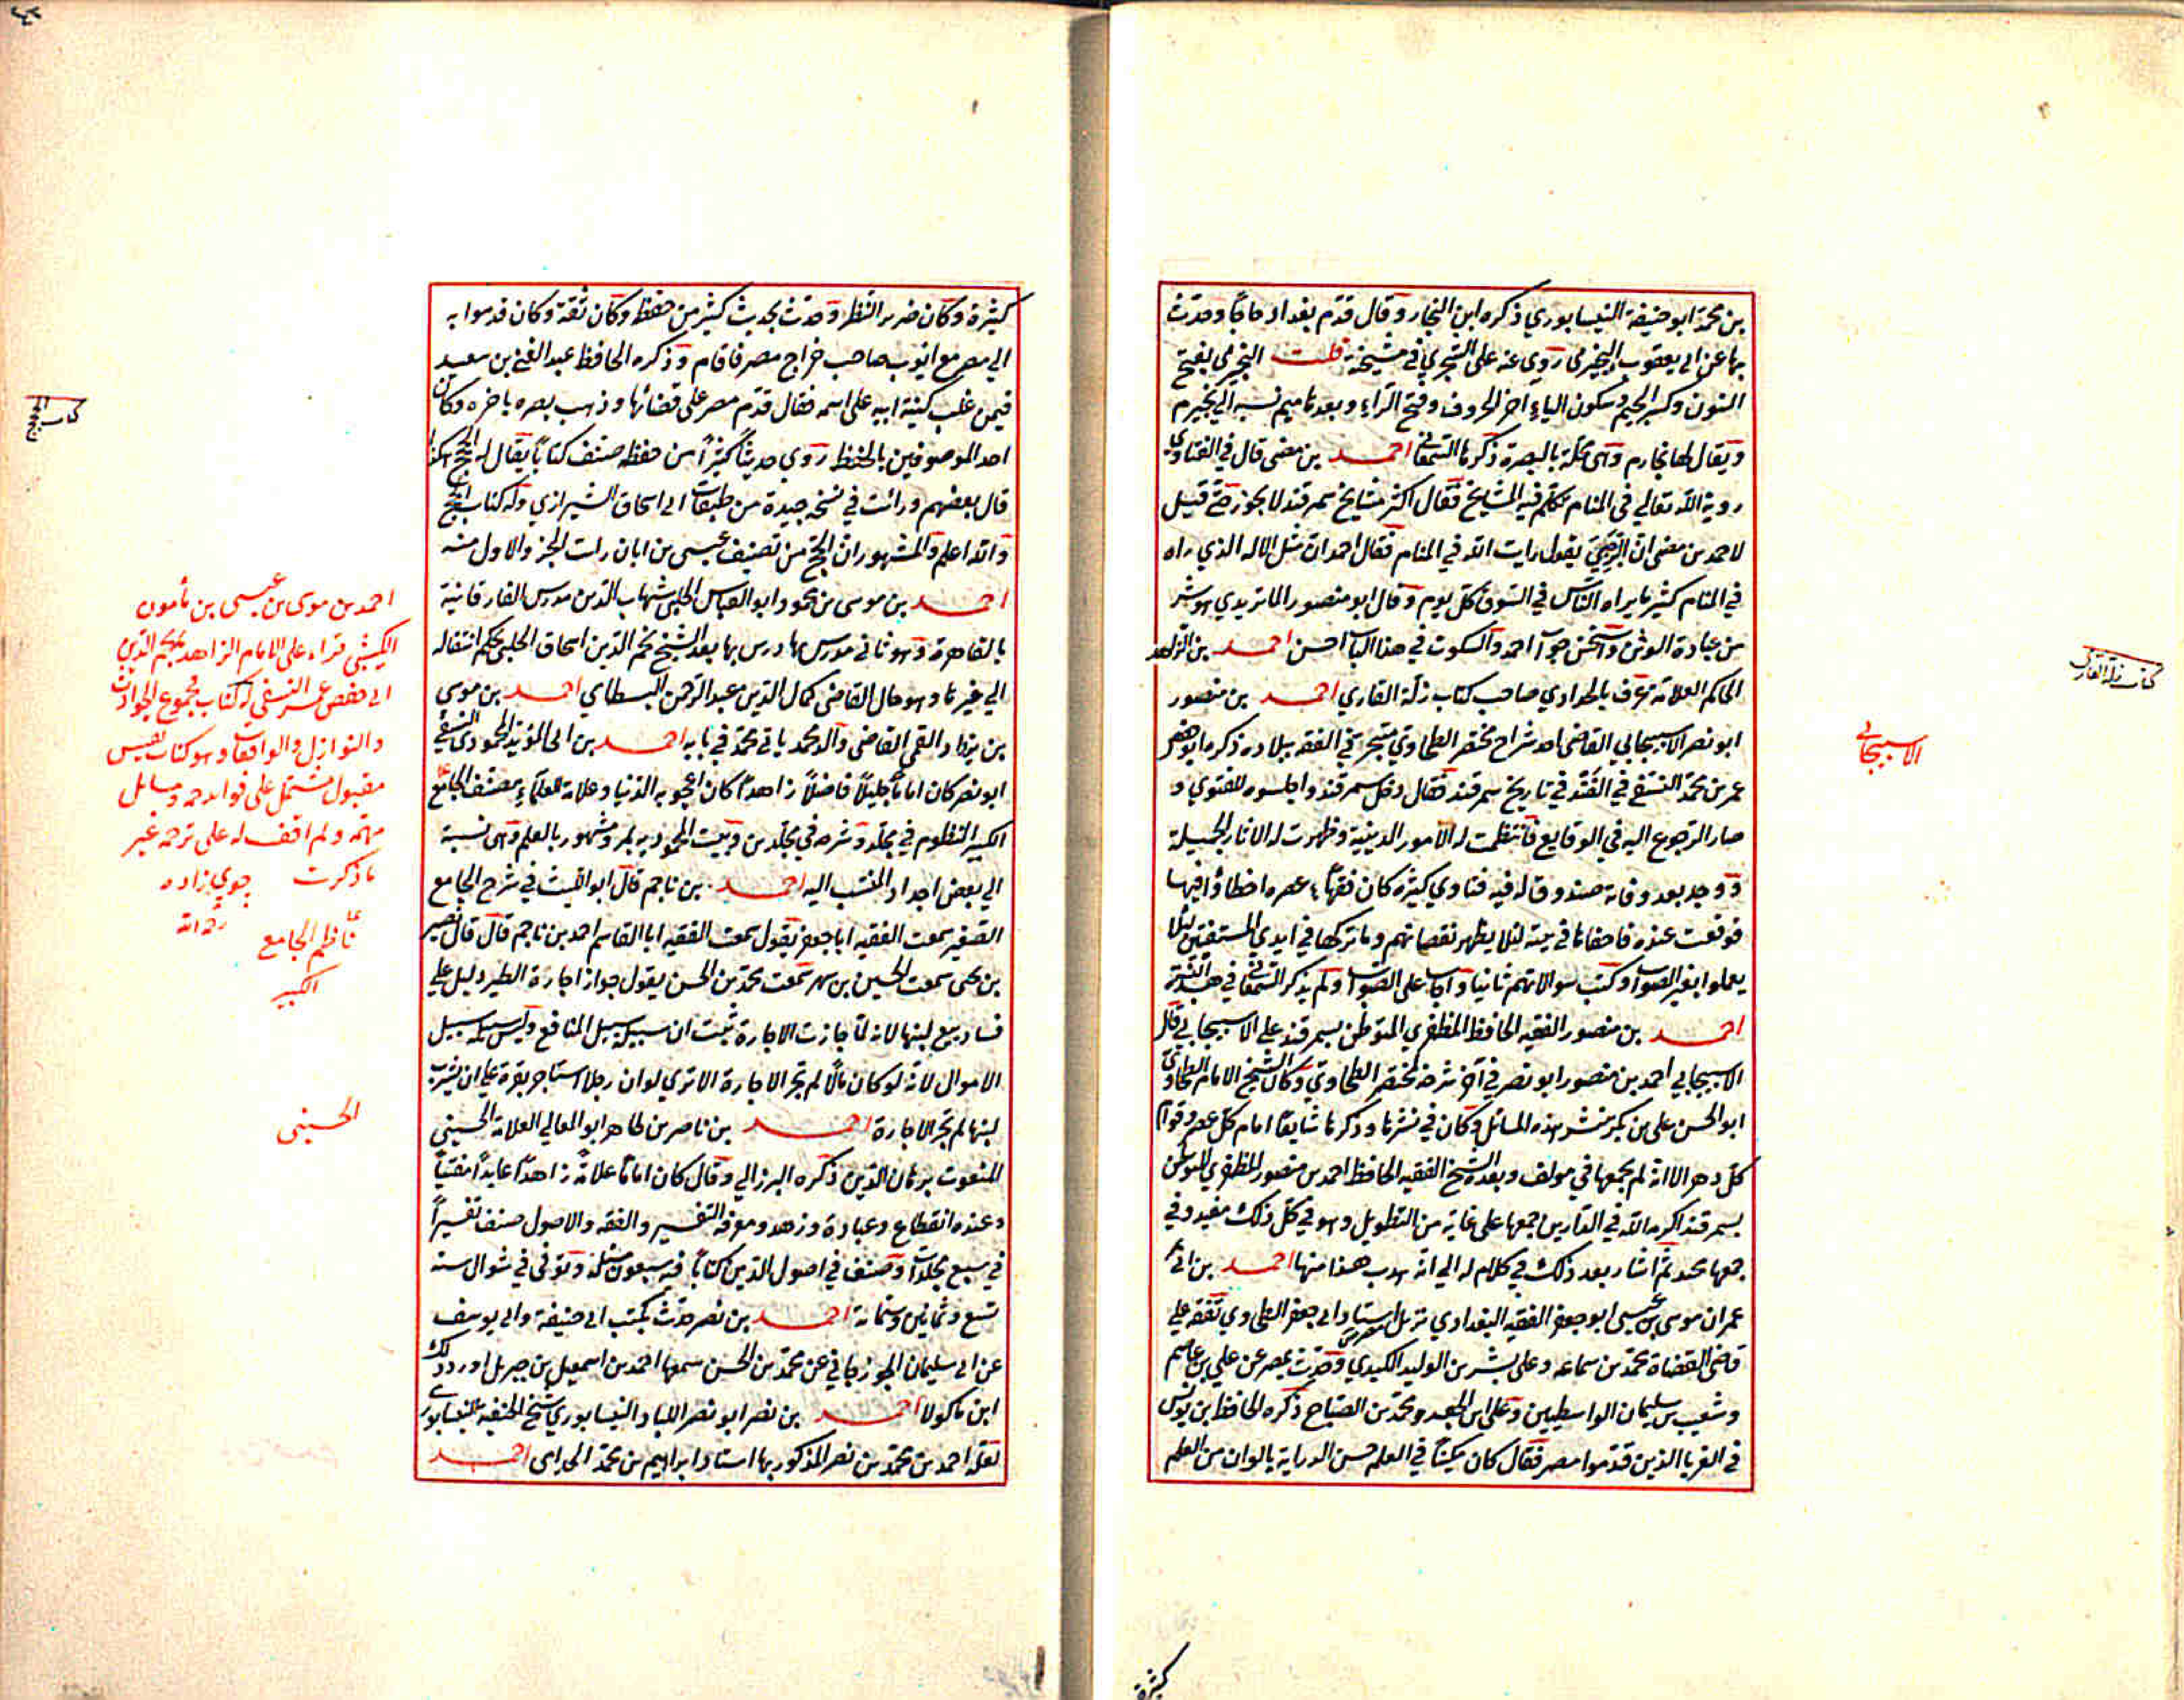 بن محمد ابو حنيفة النيسابوري ذكره ابن النجار وقال قدم بغداد حاجا وحدث
بها عن ابي يعقوب النجيرمي روى عنه علي الشجري في مشيخته قلت النجيرمي بفتح
النون وكسر الجيم وسكون الياء اخر الحروف وفتح الراء وبعدها ميم نسبه الي نجيرم
ويقال لها نجارم وهي محلة بالبصرة ذكرها السمعاني احمد بن مضى قال في الفتاوى
روية الله تعالي في المنام تكلم فيه المشايخ فقال اكثر مشايخ سمرقند لا يجوز حتى قيل
لاحمد بن مضى ان الرجل يقول رايت الله في المنام فقال احمد ان مثل الاله الذي راه
في المنام كثير ما يراه الناس في السوق كل يوم وقال ابو منصور الماتريدي هو شر
من عبادة الوثن واستحسن جواب احمد والسكوت في هذا الباب احسن احمد بن الزاهد
الحاكم العلامة عرف بالحدادي صاحب كتاب زلة القاري احمد بن منصور
ابو نصر الاسبيجابي القاضي احد شراح مختصر الطحاوي متبحر في الفقه ببلاده ذكره ابو حفص
عمر بن محمد النسفي في القند في تاريخ سمرقند فقال دخل سمرقند واجلسوه للفتوى و
صار الرجوع اليه في الوقايع فانتظمت له الامور الدينية وظهرت له الاثار الجميلة
ووجد بعد وفاته صندوق له فيه فتاوي كثيرة كان فقهاء عصره اخطاؤا فيها
فوقعت عنده فاخفاها في بيته لئلا يظهر نقصانهم وما تركها في ايدي المستفتين لئلا
يعملوا بغير الصواب وكتب سوالاتهم ثانيا واجاب على الصواب ولم يذكر السمعاني في هذه النسبة
احمد بن منصور الفقيه الحافظ المظفري المتوطن بسمرقند علي الاسبيجابي قال
الاسبيجابي احمد بن منصور ابو نصر في آخر شرحه لمختصر الطحاوي وكان الشيخ الامام الطحاوي
ابو الحسن علي بن بكر منشر هذه المسائل وكان في نشرها وذكرها شايعا امام كل عصر وقوام
كل دهر الا انه لم يجمعها في مولف وبعده الشيخ الفقيه الحافظ احمد بن منصور المظفري المتوطن
بسمرقند اكرمه الله في الدارين جمعها على غاية من التطويل وهو في كل ذلك مفيد وفي
جمعها محمد ثم اشار بعد ذلك في كلام له الي انه هذب هذا منها احمد بن ابي
عمران موسى بن عيسى ابو جعفر الفقيه البغدادي نزيل مصر استاد ابي جعفر الطحاوي تفقه علي
قاضي القضاة محمد بن سماعه وعلى بشر بن الوليد الكندي وحدث بمصر عن علي بن عاصم
وشعيب بن سليمان الواسطيين وعلي بن الجعد ومحمد بن الصباح ذكره الحافظ ابن يونس
في الغربا الذين قدموا مصر فقال كان مكينا في العلم حسن الدراية بالوان من العلم
كثيرة
الاسبيجابي
كتاب زلة القاري
كثيرة وكان ضرير النظر وحدث بحديث كثير من حفظه وكان ثقة وكان قدموا به
الي مصر مع ايوب صاحب خراج مصر فاقام وذكره الحافظ عبد الغني بن سعيد
فيمن غلب كنية ابيه على اسمه فقال قدم مصر على قضائها وذهب بصره باخره وكان
احد الموصوفين بالحفظ روي حديثا كثيرا من حفظه صنف كتابا يقال له الحجج هكذا
قال بعضهم ورايت في نسخه جيدة من طبقات ابي اسحاق الشيرازي وله كتاب الحجج
والله اعلم والمشهور ان الحجج من تصنيف عيسى بن ابان رايت الجزء الاول منه
احمد بن موسى بن محمود ابو العباس الحلبي شهاب الدين مدرس الفارقانية
بالقاهرة وهو ثاني مدرس بها درس بها بعد الشيخ نجم الدين اسحاق الحلبي بحكم انتقاله
الي غيرها وهو خال القاضي كمال الدين عبد الرحمن البسطامي احمد بن موسى
بن يزداد القمي القاضي والد محمد ياتي محمد في بابه احمد بن ابي المؤيد المحمودي النسفي
ابو نصر كان اماما جليلا فاضلا زاهدا كان اعجوبه الدنيا وعلامة العلماء مصنف الجامع
الكبير المنظوم في مجلد وشرحه في مجلدين وبيت المحموديه بمرو مشهور بالعلم وهي نسبة
الي بعض اجداد المنتسب اليه احمد بن ناجم قال ابو الليث في شرح الجامع
الصغير سمعت الفقيه ابا جعفر يقول سمعت الفقيه ابا القاسم احمد بن ناجم قال قال نصير
بن يحيى سمعت الحسين بن سهر سمعت محمد بن الحسن يقول جواز اجارة الظير دليل على
فساد بيع لبنها لانه لما جازت الاجارة ثبت ان سبيله سبيل المنافع وليس سبيله سبيل
الاموال لانه لو كان مالا لم تجز الاجارة الا ترى لو ان رجلا استاجر بقرة على ان يشرب
لبنها لم تجز الاجارة احمد بن ناصر بن طاهر ابو المعالي العلامة الحسيني
المنعوت برهان الدين ذكره البرزالي وقال كان اماما علامة زاهدا عابدا مفتيا
وعنده انقطاع وعبادة وزهد ومعرفة التفسير والفقه والاصول صنف تفسيرا
في سبع مجلدات وصنف في اصول الدين كتابا فيه سبعون مسئلة وتوفي في شوال سنة
تسع وثمانين وستماية احمد بن نصر حدث بكتب ابي حنيفة وابي يوسف
عن ابي سليمان الجوزجاني عن محمد بن الحسن سمعها احمد بن اسمعيل بن جبريل اورد ذلك
ابن ماكولا احمد بن نصر ابو نصر اللباد النيسابوري شيخ الحنفية بنيسابور
لعله احمد بن محمد بن نصر المذكور بها استاد ابراهيم بن محمد الحدامي احمد
كتاب الحجج
احمد بن موسى بن عيسى بن مأمون
الكشني قراء على الامام الزاهد نجم الدين
ابي حفص عمر النسفي له كتاب مجموع الحوادث
والنوازل والواقعات وهو كتاب نفيس
مقبول مشتمل على فوائد جمه ومسايل
مهمه ولم اقف له على ترجمه غير
ما ذكرت جوي زاده
رحمه الله
ناظم الجامع
الكبير
الحسيني